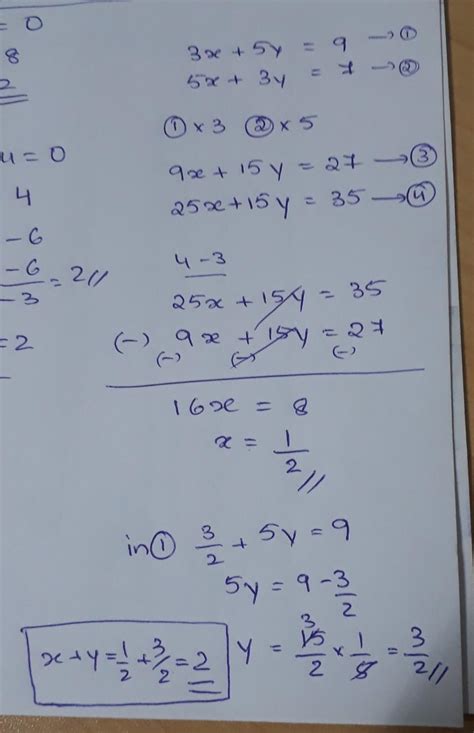 = 0
8
2
u = 0
4
- 6
- 6
- 3
= 2 //
= 2
3x + 5y = 9 → ①
5x + 3y = 7 → ②
① × 3 ② × 5
9x + 15y = 27 → ③
25x + 15y = 35 → ④
4 - 3
25x + 15y = 35
(-) 9x + 15y = 27
(-) (-) (-)
16x = 8
x = 1/2 //
in ① 3/2 + 5y = 9
5y = 9 - 3/2
y = 15/2 × 1/5 = 3/2 //
3
x + y = 1/2 + 3/2 = 2